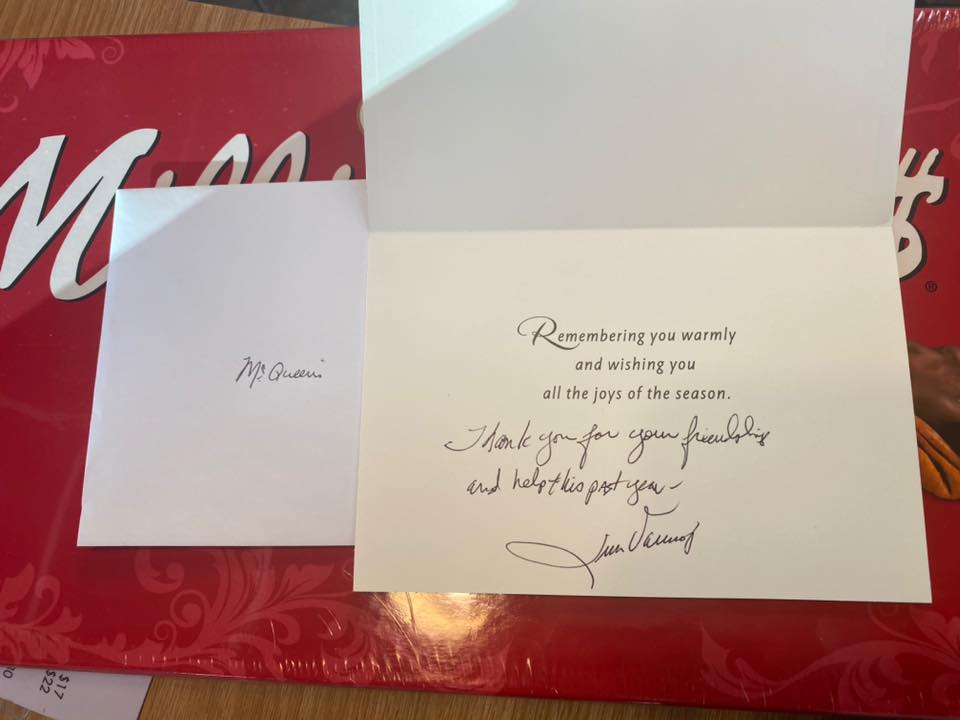 Mc Queen's
Remembering you warmly
and wishing you
all the joys of the season.
Thank you for your friendship
and help this past year-
$17
$22
®